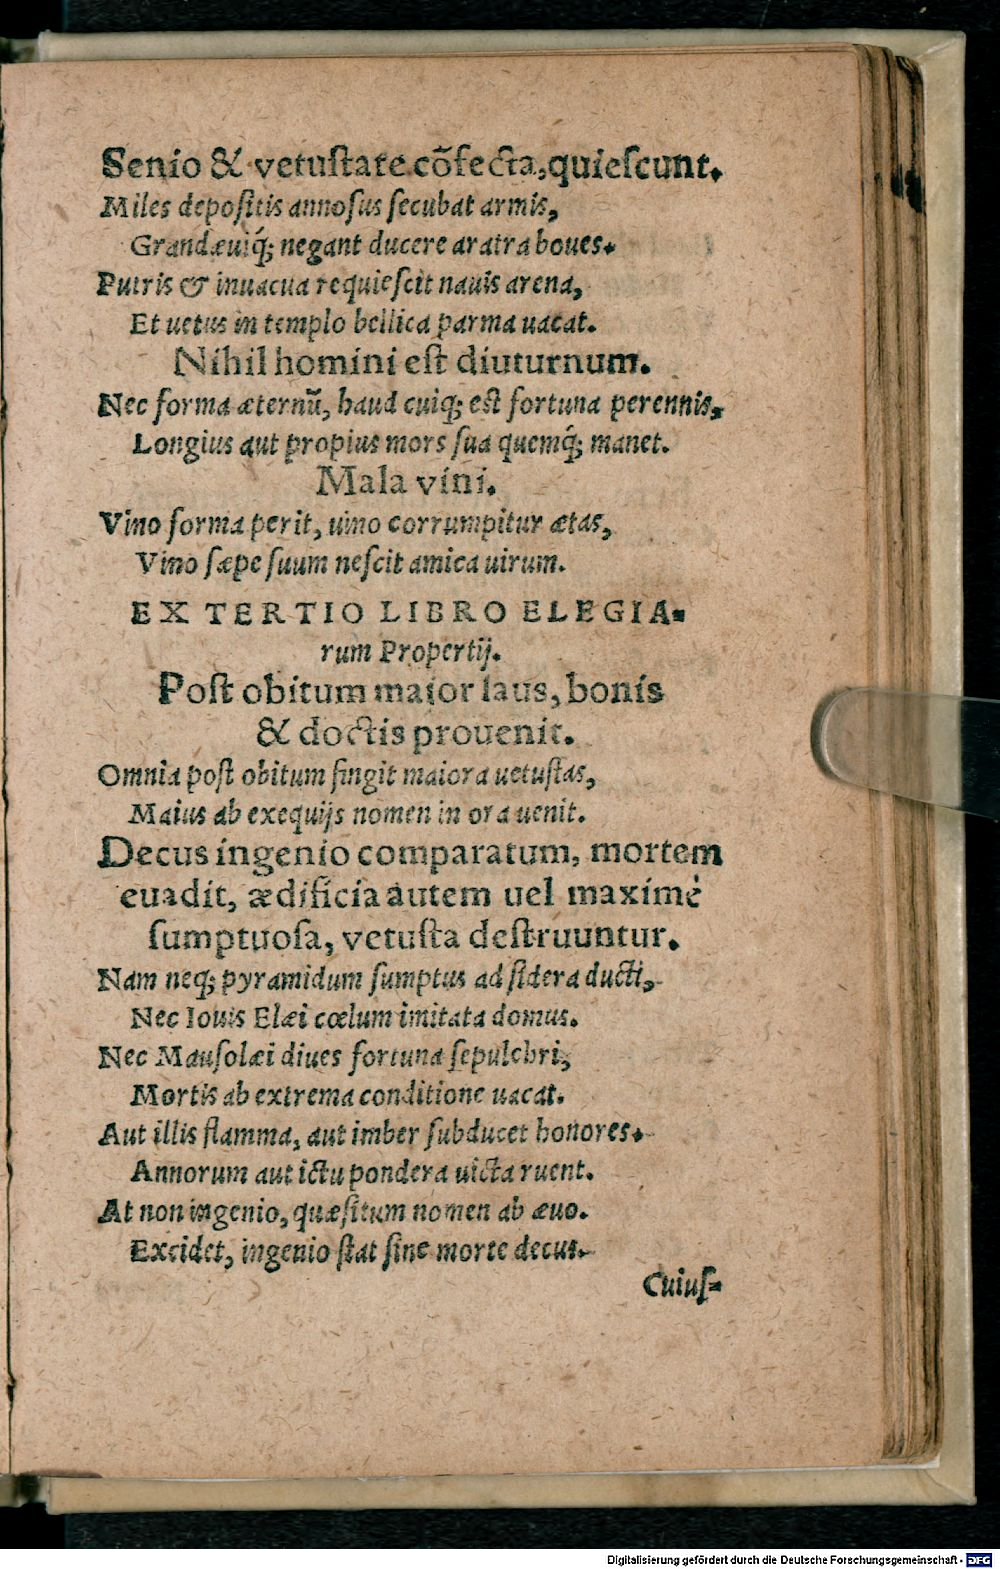 Senio & vetuſtate cōfecta, quieſcunt.
Miles depoſitis annoſus ſecubat armis,
Grandæuiq́; negant ducere aratra boues.
Putris & inuacua requieſcit nauis arena,
Et uetus in templo bellica parma uacat.
Nihil homini eſt diuturnum.
Nec forma æternū, haud cuiq; eſt fortuna perennis,
Longius aut propius mors ſua quemq́; manet.
Mala vini.
Vino forma perit, uino corrumpitur ætas,
Vino ſæpe ſuum neſcit amica uirum.
EX TERTIO LIBRO ELEGIA-
rum Propertij.
Poſt obitum maior laus, bonis
& doctis prouenit.
Omnia poſt obitum fingit maiora uetuſtas,
Maius ab exequijs nomen in ora uenit.
Decus ingenio comparatum, mortem
euadit, ædificia autem uel maximè
ſumptuoſa, vetuſta deſtruuntur.
Nam neq; pyramidum ſumptus ad ſidera ducti,
Nec Iouis Elæi cœlum imitata domus.
Nec Mauſolæi diues fortuna ſepulchri,
Mortis ab extrema conditione uacat.
Aut illis flamma, aut imber ſubducet honores.
Annorum aut ictu pondera uicta ruent.
At non ingenio, quæſitum nomen ab æuo.
Excidet, ingenio ſtat ſine morte decus.
Cuiuſ-
Digitalisierung gefördert durch die Deutsche Forschungsgemeinschaft - DFG